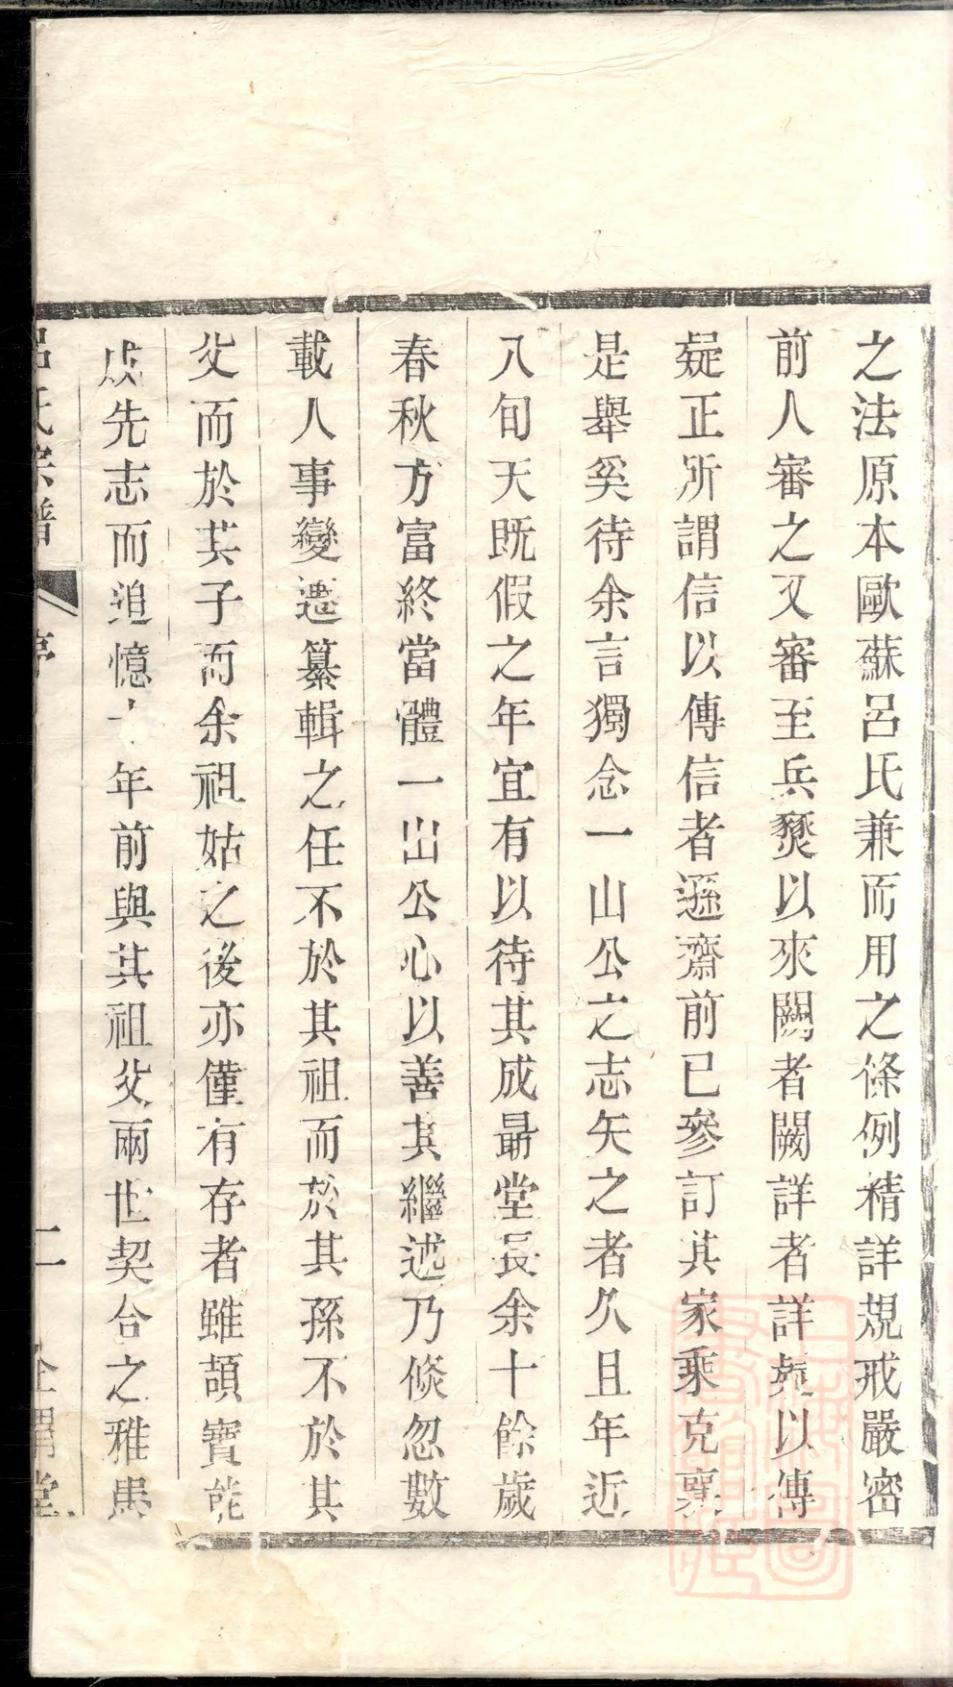 之法原本歐蘇呂氏兼而用之條例精詳規戒嚴密
前人審之又審至兵燹以來闕者闕詳者詳疑以傳
疑正所謂信以傳信者遜齋前已參訂其家乘克襄
是舉奚待余言獨念一山公之志矢之者久且年近
八旬天既假之年宜有以待其成最堂長余十餘歲
春秋方富終當體一出公心以善其繼述乃倏忽數
載人事變遷纂輯之任不於其祖而於其孫不於其
父而於其子而余祖姑之後亦僅有存者雖頡寶能
成先志而追憶十年前與其祖父兩世契合之雅患
呂氏宗譜 序 二 堂
上海圖書館藏